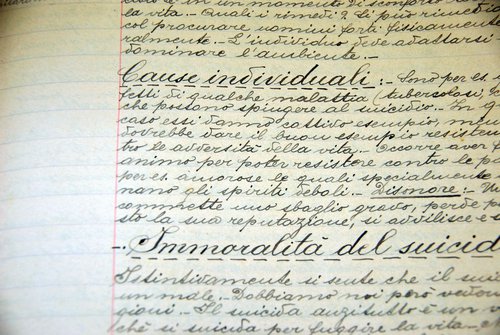 la vita.- Quali i rimedi? Si può
col procurare uomini forti fisicamente
ralmente.- L'individuo deve adattarsi
dominare l'ambiente.-
Cause individuali:- Sono per es.
fetti di qualche malattia (tubercolosi,
che possono spingere al suicidio. In
caso essi danno cattivo esempio, men
dovrebbe dare il buon esempio resisten
tro le avversità della vita. Occorre aver
animo per poter resistere contro le
per es. amorose le quali specialmente
nano gli spiriti deboli.- Disonore:-
commette uno sbaglio grave, perde
sto la sua reputazione, si avvilisce e
-. Immoralità del suicid
Istintivamente si sente che il sui
un male. Dobbiamo noi però veder
gioni. Il suicida anzitutto è un
chè si suicida per fuggire la vita.-